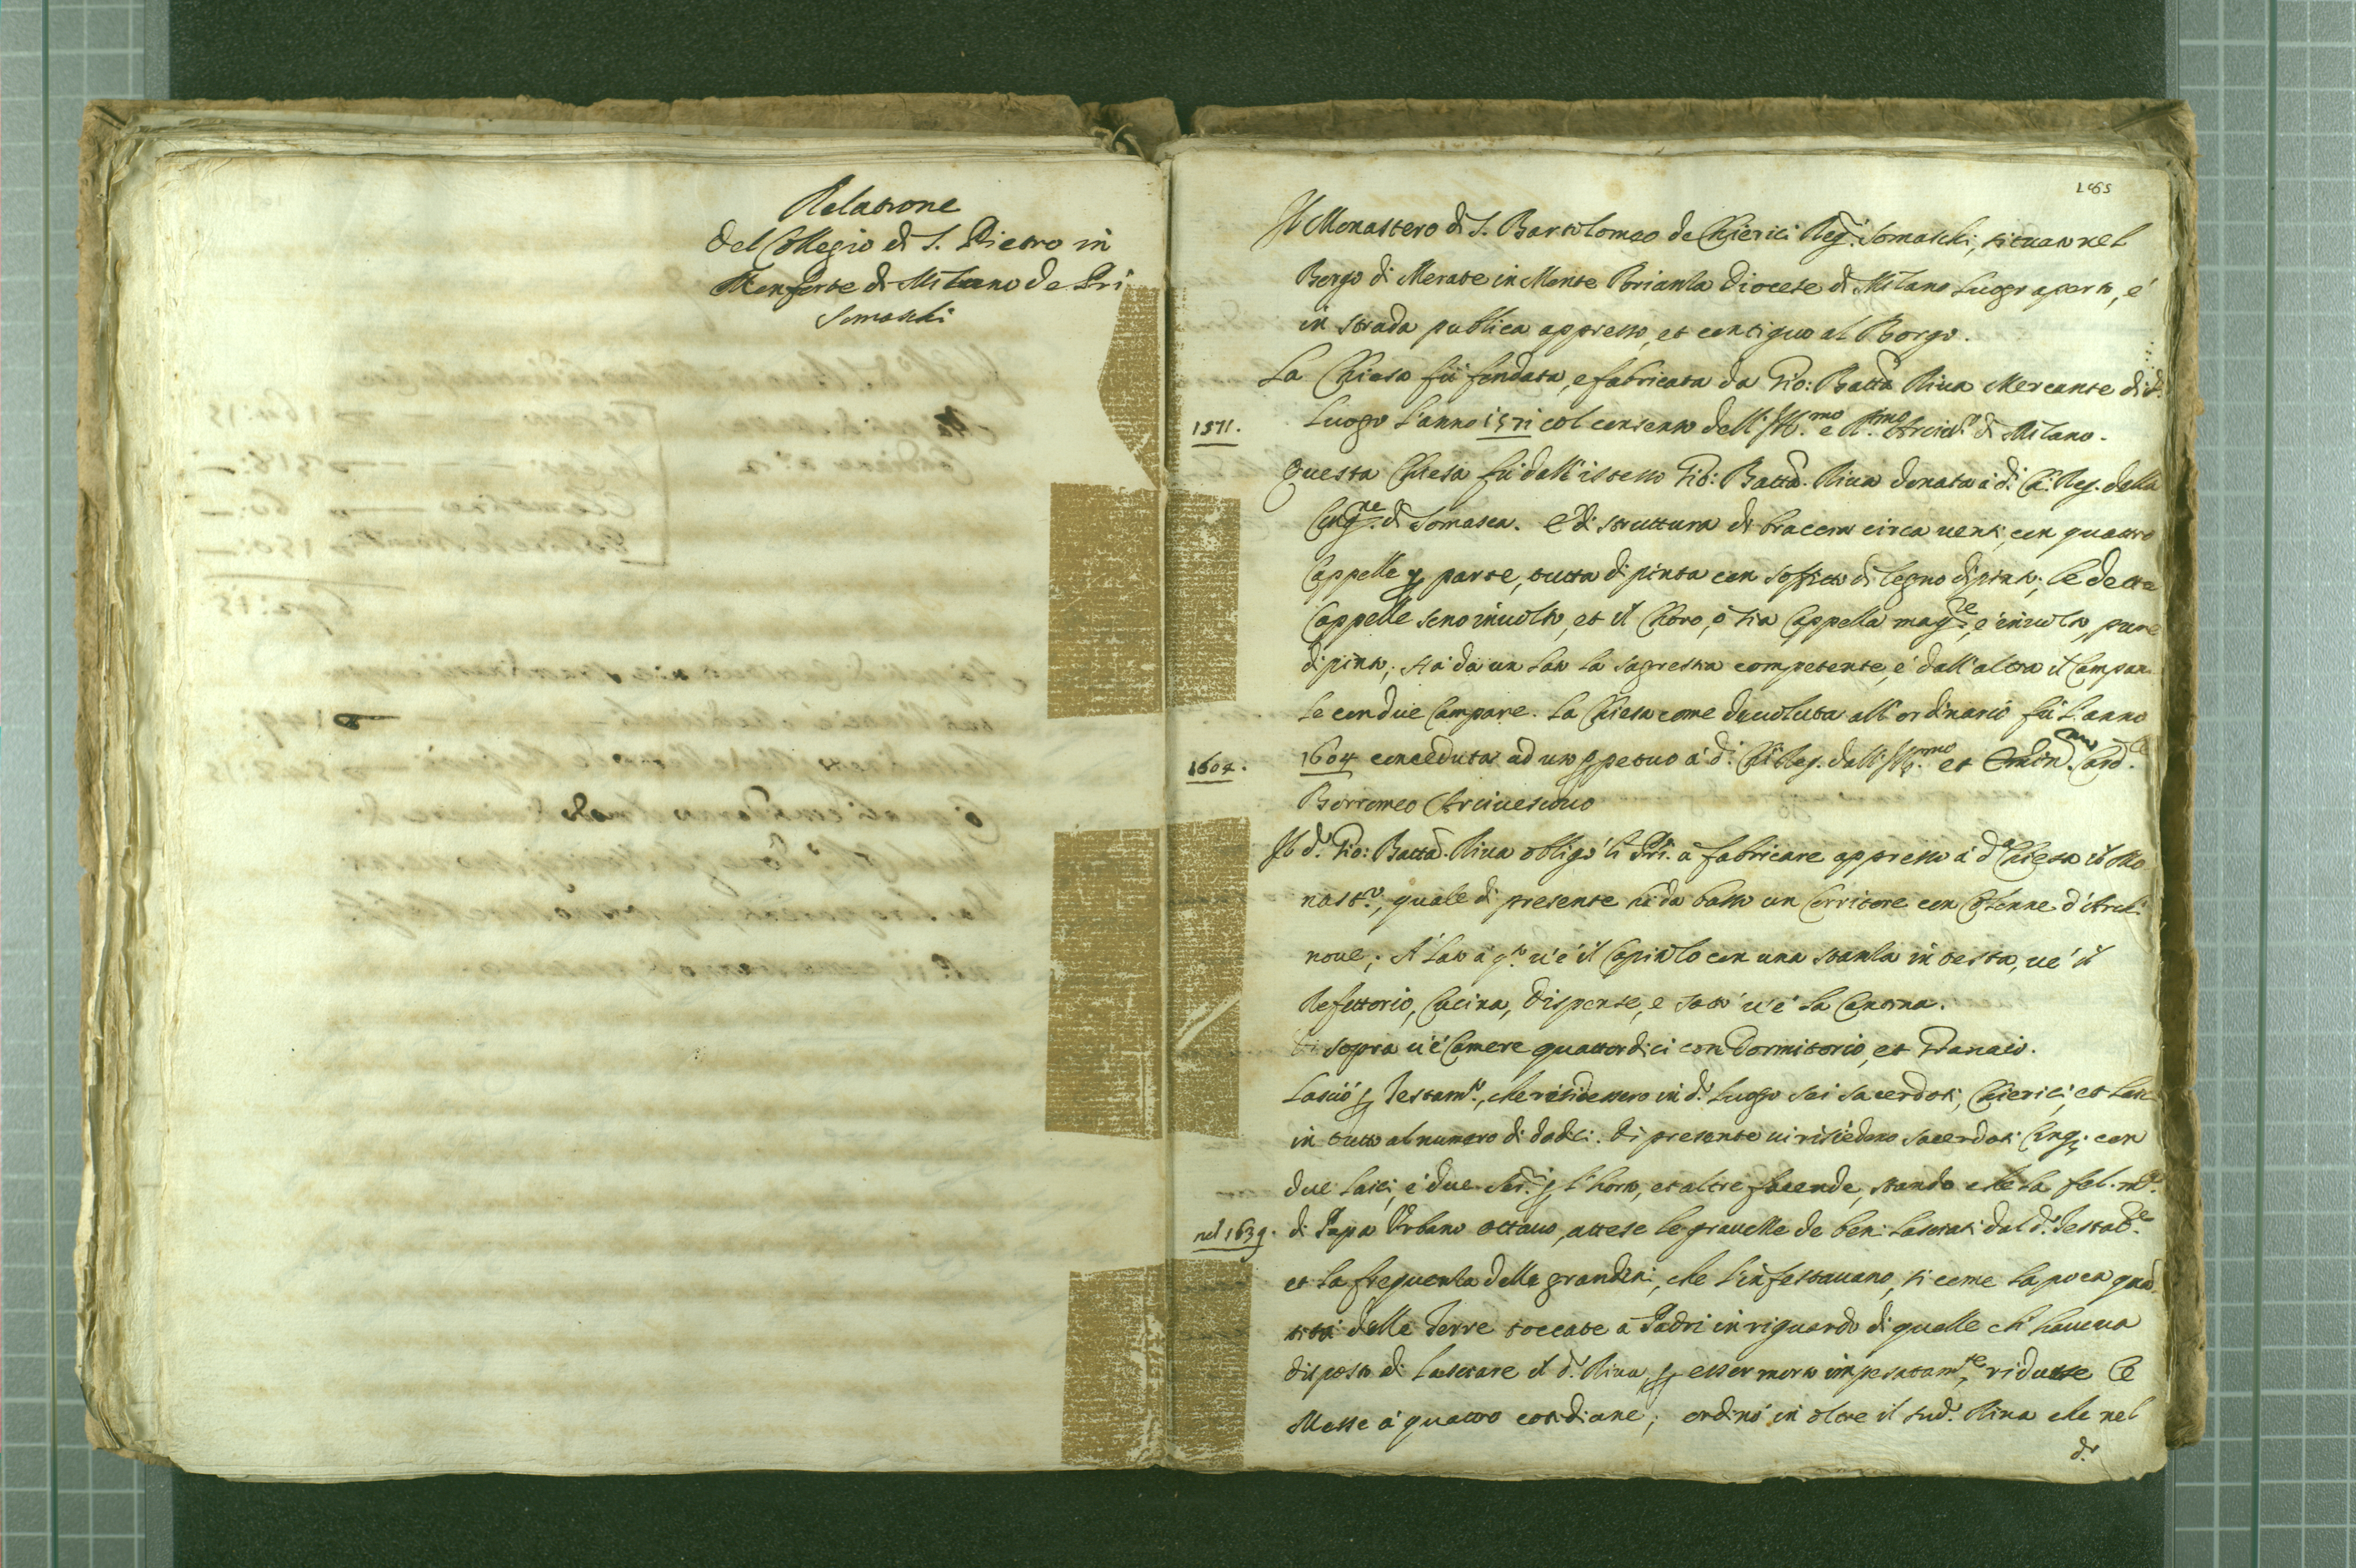 Relatione
del Collegio di S. Pietro in
Monforte di Milano de Pri
Somaschi
165
Il Monastero di S. Bartolomeo de Chierici Reg. Somaschi, situato nel
Borgo di Merate in Monte Brianza Diocese di Milano luogo aperto, é
in strada publica appresso, et contiguo al Borgo.
La Chiesa fù fondata, e fabricata da Gio: Batta Riua Mercante di d.
1571.
luogo l'anno 1571 col consenso dell'Ill.mo e R.mo Arciu.o di Milano.
Questa Chiesa fù dall'istesso Gio: Batta. Riua donata à d. Ch. Reg. della
Cong.ne di Somasca. E di struttura di braccia circa uenti, con quattro
Cappelle p parte, tutta dipinta con soffitto di legno dipinto; le dette
Cappelle sono inuolto, et il Choro, ò sia Cappella mag.re, é inuolto, pure
dipinto; stà da un lato la sagrestia competente, é dall'altra il Campani
le con due Campane. La Chiesa come deuoluta all'ordinario fù l'anno
1604.
1604 conceduta ad uso ppetuo à d. Ch. Reg. dall'Ill.mo et Emin.mo Card.le
Borromeo Arciuescouo
Il d.o Gio: Batta. Riua obligò li Pri. à fabricare appresso à d.a Chiesa il Mo
nast.o, quale di presente hà da basso un Corritore con Colonne d'Archi
noue; A lato à q.o u'é il Capitolo con una stanza in testa, ué il
Refettorio, Cucina, Dispense, e sott' u'é la Canoua.
Di sopra u'é Camere quattordici con Dormitorio, et Granaio.
Lasciò p Testam.o, che risiedessero in d.o luogo sei sacerdoti, Chierici, et laici
in tutto al numero di dodici. Di presente ui risiedono sacerdoti Cinq; con
due laici, é due Ser.ri p l'horto, et altre facende, stando che la fel. m.a
nel 1639.
di Papa Vrbano ottauo, attese le grauezze de beni lasciati dal d.o Testat.re
et la frequenza delle grandini, che l'infestauano, si come la poca quan
tità delle Terre toccate à Padri in riguardo di quelle ch'haueua
disposto di lasciare il d.o Riua p esser morto impensatam.te, ridusse le
Messe à quattro cotidiane; ordinò in oltre il sud.o Riua che nel
d.o